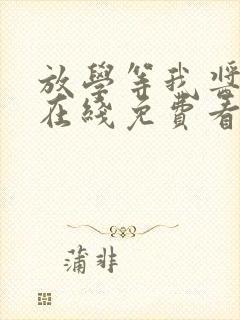 放學等我 
在綫免費看
蒲非